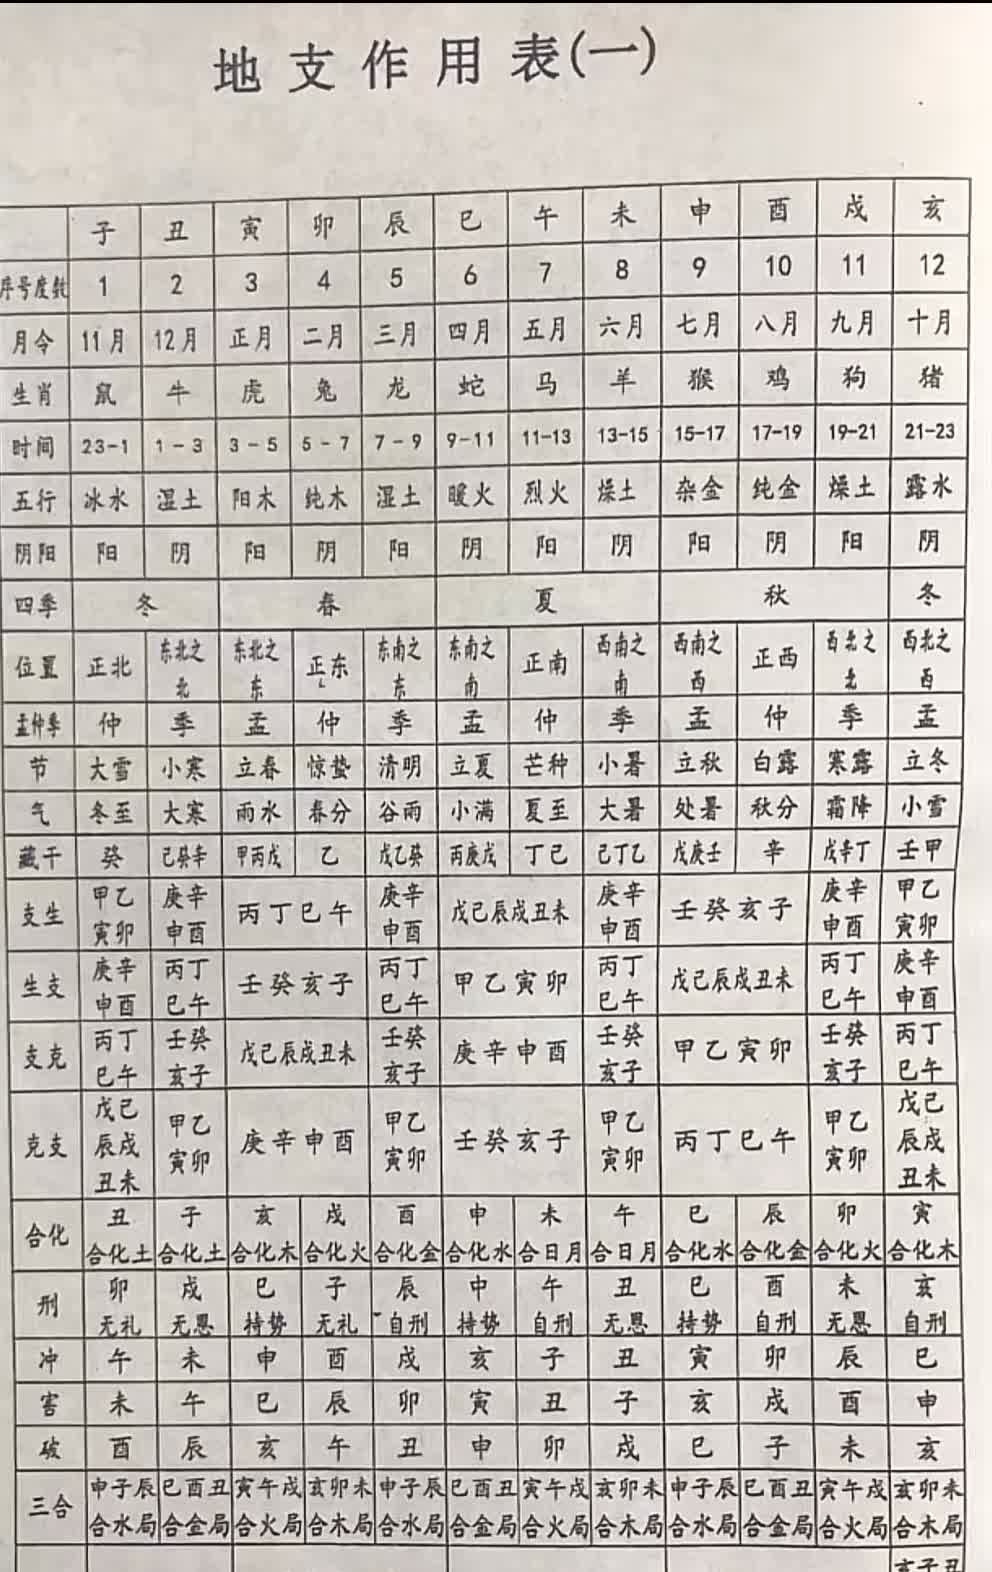 地支作用表(一)
子 丑 寅 卯 辰 巳 午 未 申 酉 戌 亥
序号度数 1 2 3 4 5 6 7 8 9 10 11 12
月令 11月 12月 正月 二月 三月 四月 五月 六月 七月 八月 九月 十月
生肖 鼠 牛 虎 兔 龙 蛇 马 羊 猴 鸡 狗 猪
时间 23-1 1-3 3-5 5-7 7-9 9-11 11-13 13-15 15-17 17-19 19-21 21-23
五行 冰水 湿土 阳木 纯木 湿土 暖火 烈火 燥土 杂金 纯金 燥土 露水
阴阳 阳 阴 阳 阴 阳 阴 阳 阴 阳 阴 阳 阴
四季 冬 春 夏 秋 冬
位置 正北 东北之北 东北之东 正东 东南之东 东南之南 正南 西南之南 西南之西 正西 西北之北 西北之西
孟仲季 仲 季 孟 仲 季 孟 仲 季 孟 仲 季 孟
节 大雪 小寒 立春 惊蛰 清明 立夏 芒种 小暑 立秋 白露 寒露 立冬
气 冬至 大寒 雨水 春分 谷雨 小满 夏至 大暑 处暑 秋分 霜降 小雪
藏干 癸 己癸辛 甲丙戊 乙 戊乙癸 丙庚戊 丁己 己丁乙 戊庚壬 辛 戊辛丁 壬甲
支生 甲乙寅卯 庚辛申酉 丙丁巳午 庚辛申酉 戊己辰戌丑未 庚辛申酉 壬癸亥子 庚辛申酉 甲乙寅卯
生支 庚辛申酉 丙丁巳午 壬癸亥子 丙丁巳午 甲乙寅卯 丙丁巳午 戊己辰戌丑未 丙丁巳午 庚辛申酉
支克 丙丁巳午 壬癸亥子 戊己辰戌丑未 壬癸亥子 庚辛申酉 壬癸亥子 甲乙寅卯 壬癸亥子 丙丁巳午
克支 戊己辰戌丑未 甲乙寅卯 庚辛申酉 甲乙寅卯 壬癸亥子 甲乙寅卯 丙丁巳午 甲乙寅卯 戊己辰戌丑未
合化 丑合化土 子合化土 亥合化木 戌合化火 酉合化金 申合化水 未合日月 午合日月 巳合化水 辰合化金 卯合化火 寅合化木
刑 卯无礼 戌无恩 巳持势 子无礼 辰自刑 申持势 午自刑 丑无恩 巳持势 酉自刑 未无恩 亥自刑
冲 午 未 申 酉 戌 亥 子 丑 寅 卯 辰 巳
害 未 午 巳 辰 卯 寅 丑 子 亥 戌 酉 申
破 酉 辰 亥 午 丑 申 卯 戌 巳 子 未 亥
三合 申子辰合水局 巳酉丑合金局 寅午戌合火局 亥卯未合木局 申子辰合水局 巳酉丑合金局 寅午戌合火局 亥卯未合木局 申子辰合水局 巳酉丑合金局 寅午戌合火局 亥卯未合木局
亥子丑